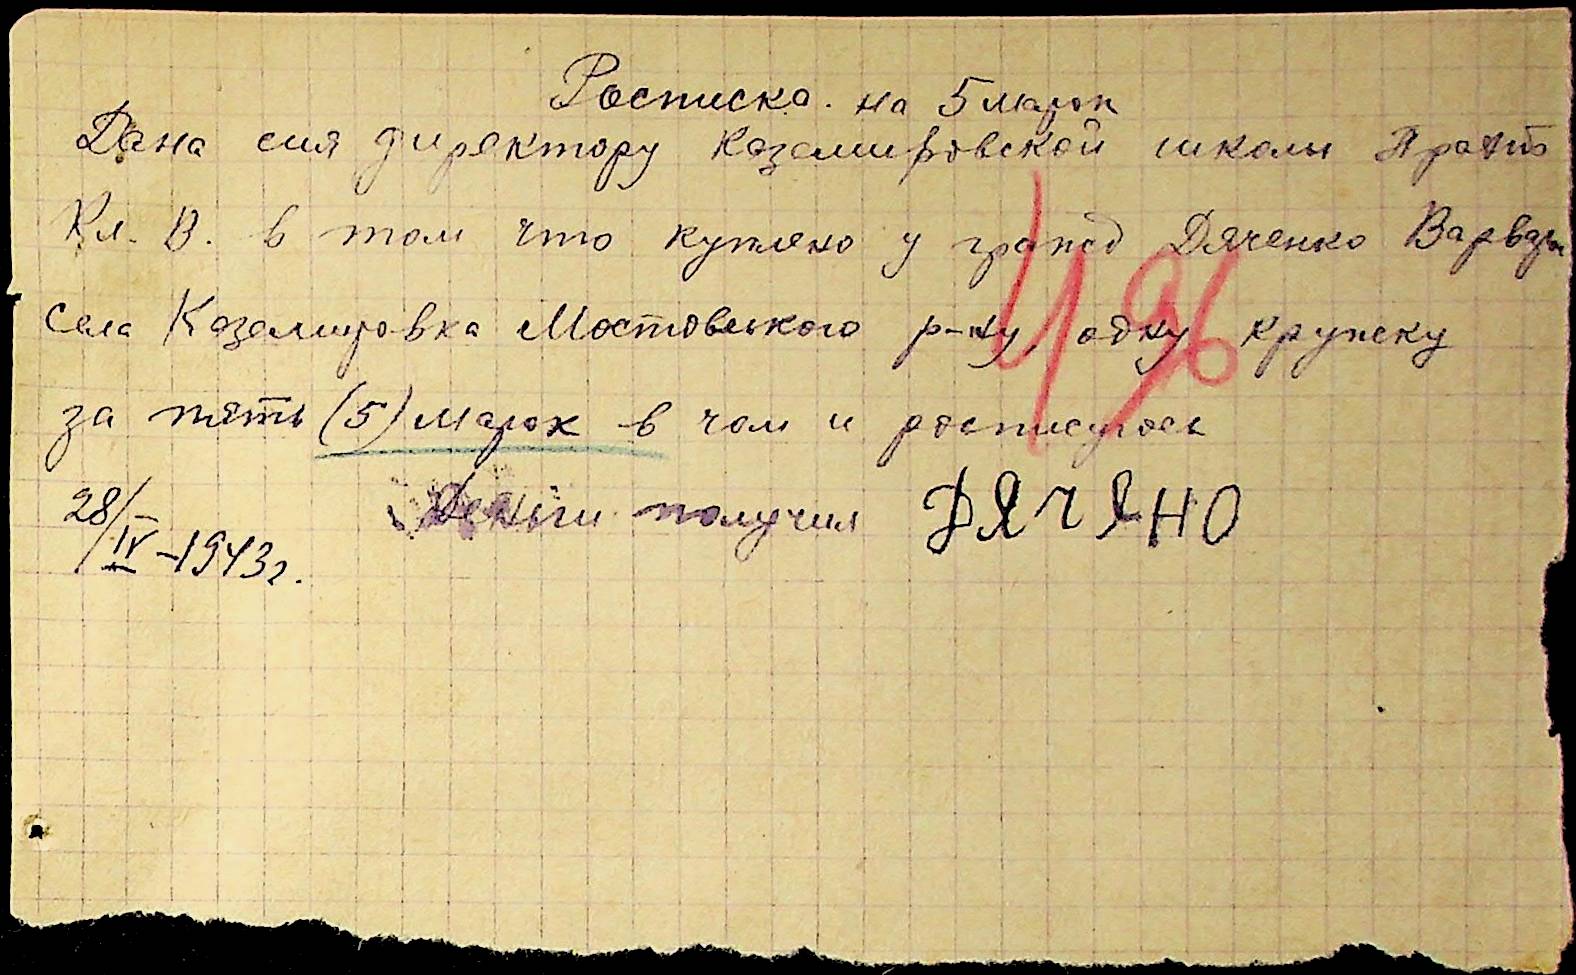 Росписка. на 5 марок
Дана сия директору Каземировской школы
Кл. В. в том что куплено у гражд Дяченко Варвары
села Каземировка Мостовського р-ну, одну кружку
за пять (5) марок в чом и росписуюсь
28/IV-1943г. Деньги получил ДЯЧЯНО
496